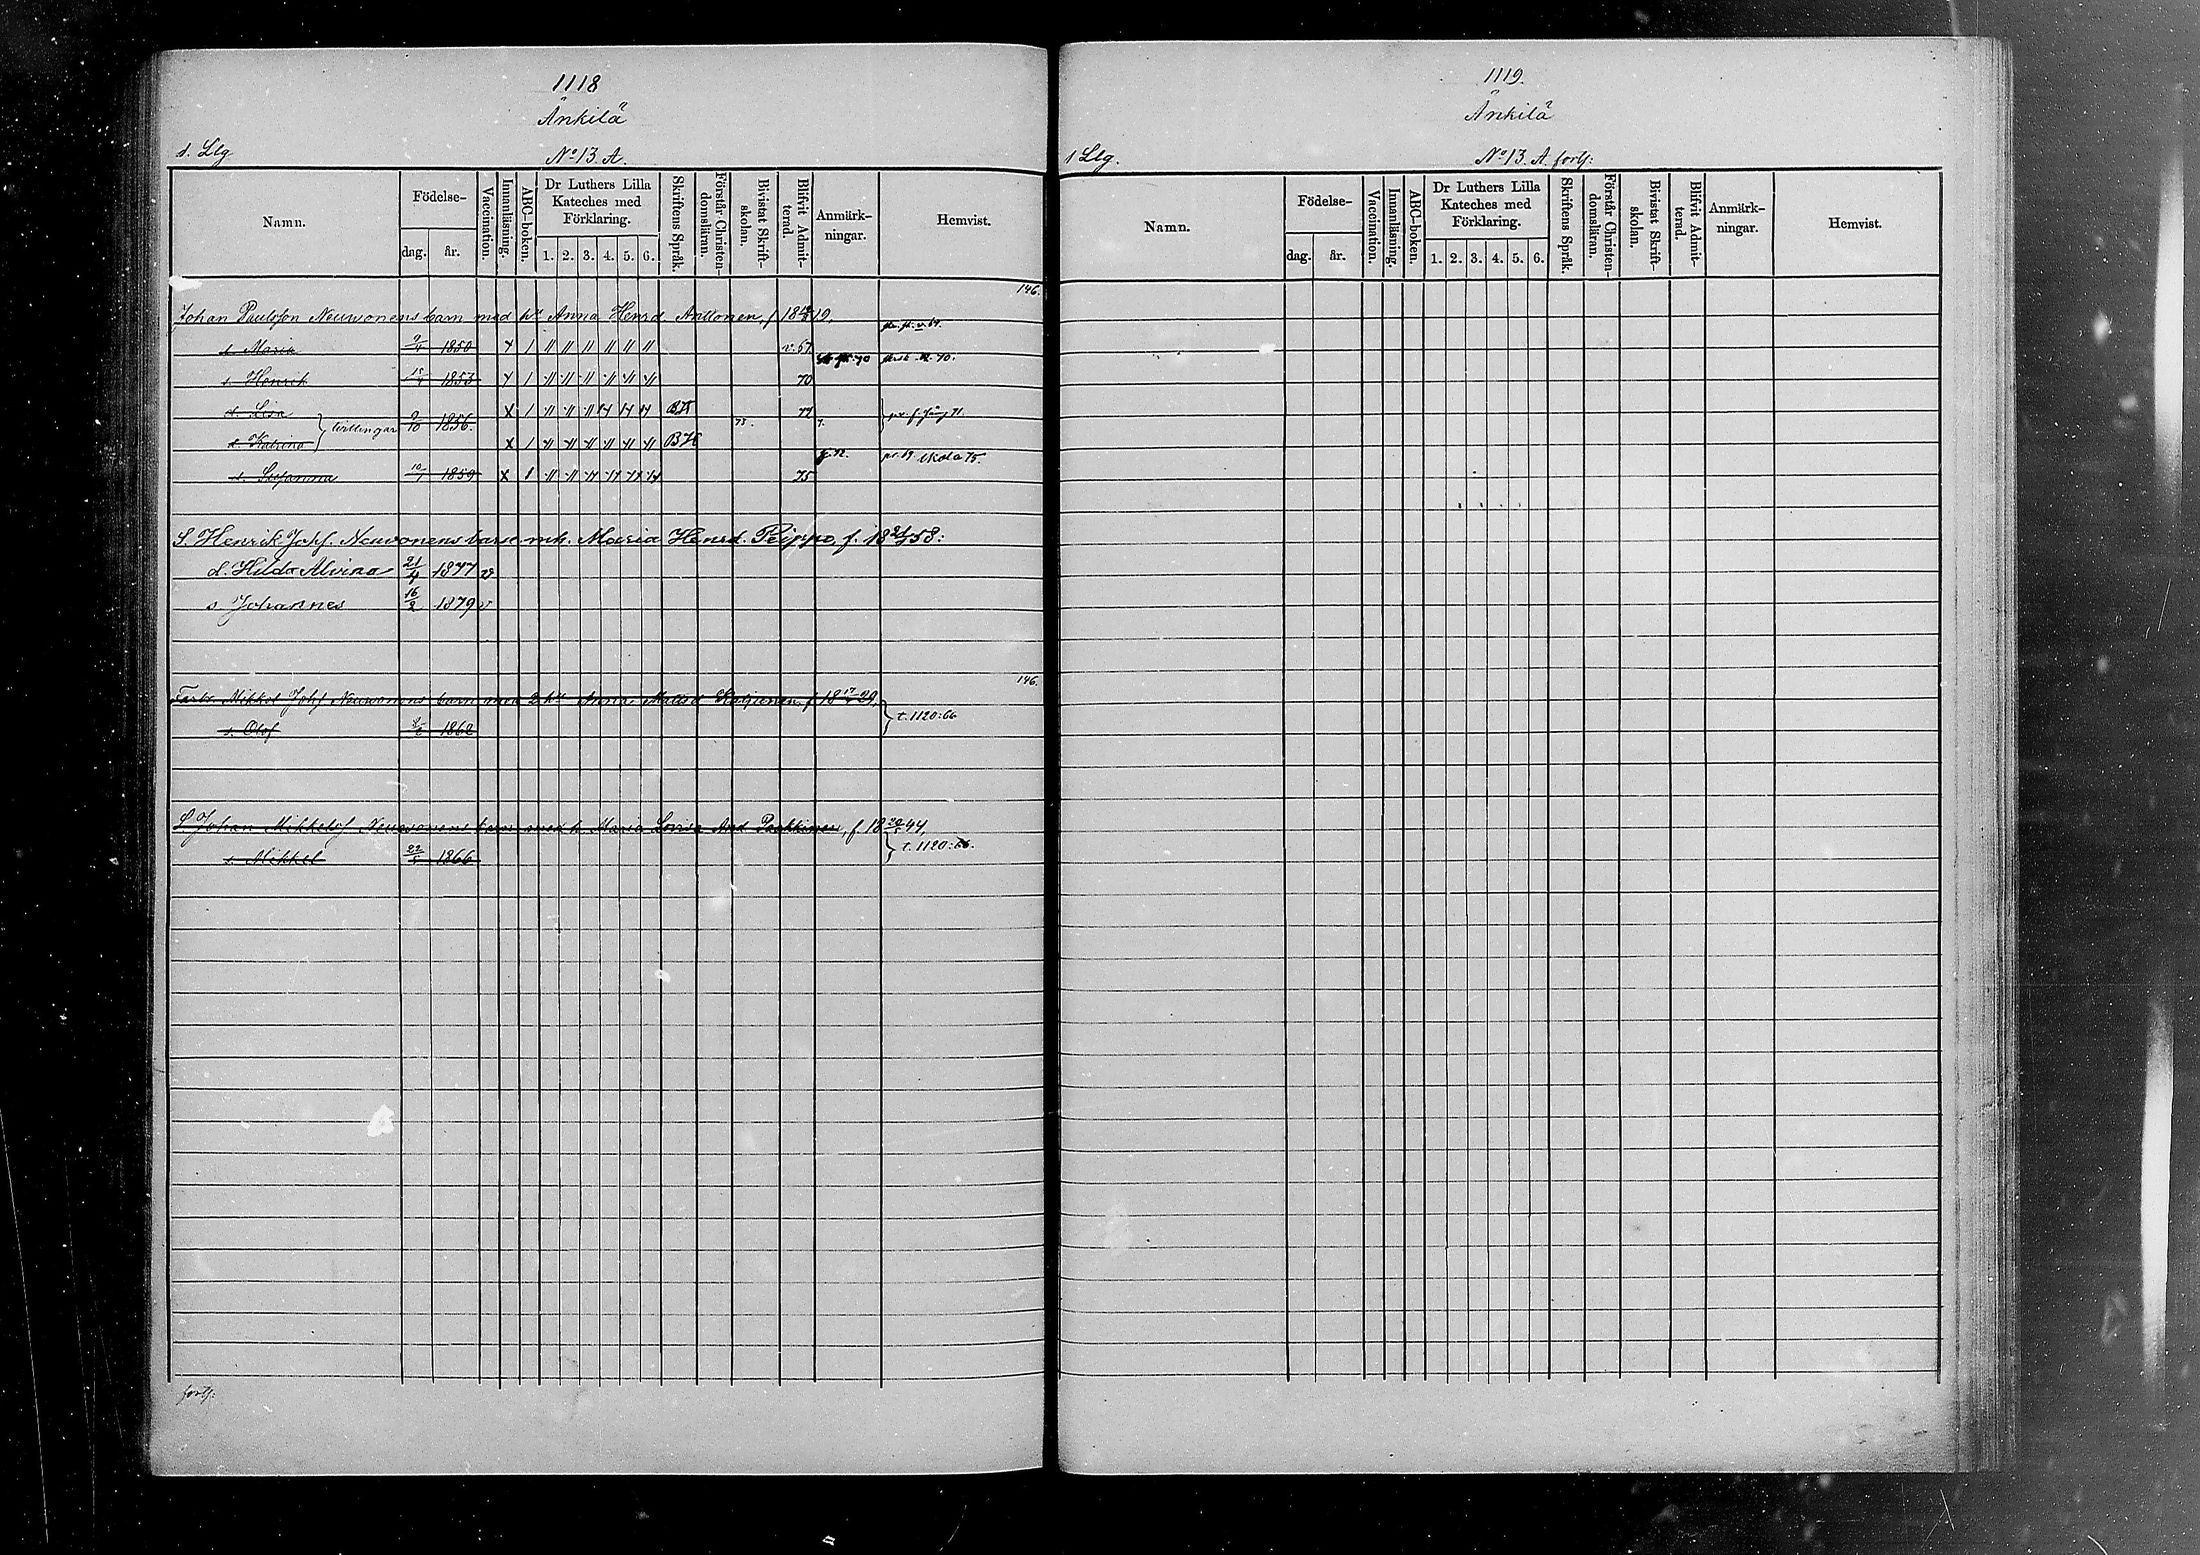 1118
Änkilä
1. Llg
No 13. A.
Namn.
Födelse-
dag.
år.
Vaccination.
Innanläsning.
ABC-boken.
Dr Luthers Lilla Kateches med Förklaring.
1. 2. 3. 4. 5. 6.
Skriftens Språk.
Förstår Christendomsläran.
Bivistat Skriftskolan.
Blifvit Admitterad.
Anmärkningar.
Hemvist.
146.
Johan Paulsson Neuvonens barn med h. Anna Henrd. Anttonen, f. 18 19.
d. Maria 1850 v. 67
s. Henrik 15 1853 70
d. Lisa
tvillingar 9/10 1856.
d. Katrina BK
d. Stefanna 10 1859 75
S. Henrik Johs. Neuvonens barn mh. Maria Henrd. Peippo, f. 18 58:
d. Hilda Alvina 21/4 1877 v
s. Johannes 16/2 1879 v
146.
Mikkel Johs Neuvonens barn med 2 h. Anna Mattsd f 18 17 29,
s. Olof 1862 } t. 1120:66
S. Johan Mikkelss Neuvonens barn med h. Maria Lovisa And. Paakkinen, f. 18 44,
s. Mikkel 22 1866 } t. 1120:66.
forts:
1119.
Änkilä
1 Llg.
No 13. A. forts:
Namn.
Födelse-
dag.
år.
Vaccination.
Innanläsning.
ABC-boken.
Dr Luthers Lilla Kateches med Förklaring.
1. 2. 3. 4. 5. 6.
Skriftens Språk.
Förstår Christendomsläran.
Bivistat Skriftskolan.
Blifvit Admitterad.
Anmärkningar.
Hemvist.